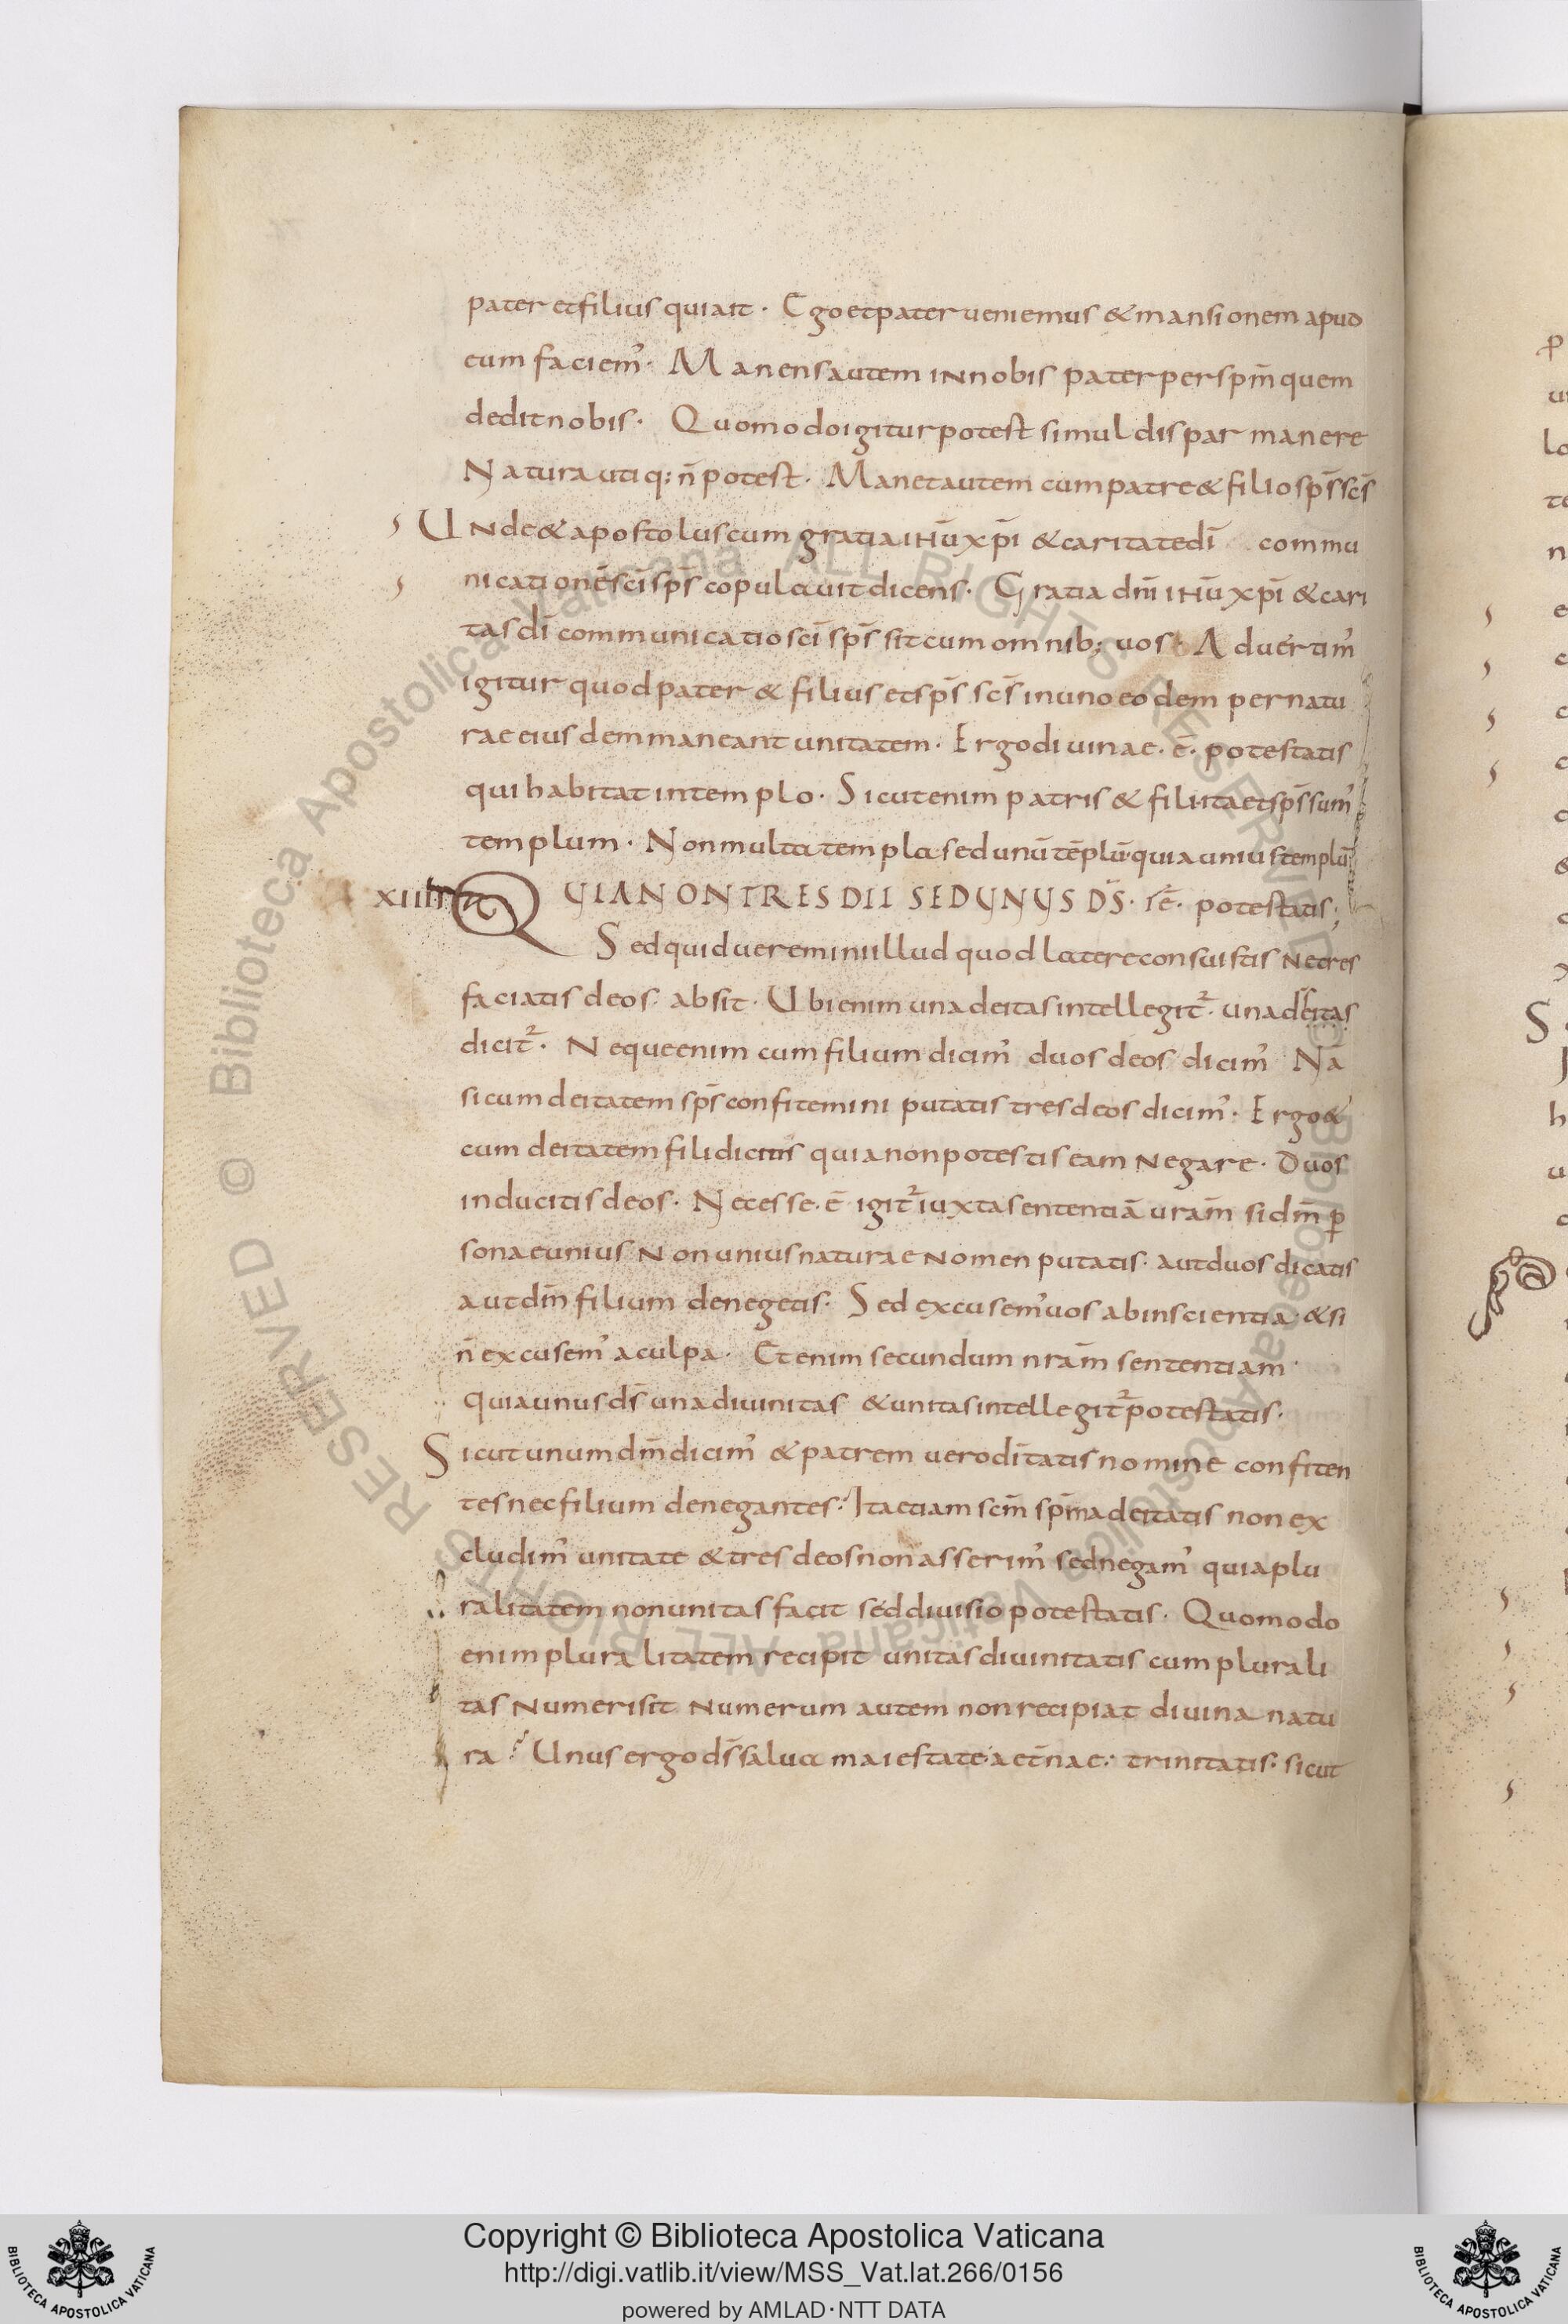 pater et filius quiait · Ego et pater ueniemus & mansionem apud
eum faciem᾽ · Manens autem in nobis pater per spm̄ quem
dedit nobis · Quomodo igitur potest simul dispar manere
Natura utiq; n̄ potest · Manet autem cum patre & filio sp̄s sc̄s
Unde & apostolus cum gratia ihū xp̄i & caritate dī commu
nicationē sc̄i sp̄s copulauit dicens · Gratia dn̄i ihū xp̄i & cari
tas dī communicatio sc̄i sp̄s sit cum omnib; uos · Aduertim᾽
igitur quod pater & filius et sp̄s sc̄s in uno eodem per natu
rae eiusdem maneant unitatem · Ergo diuinae · ē · potestatis
qui habitat in templo · Sicut enim patris & filii ita et sp̄s sum᾽
templum · Non multa templa sed unū tēplū · quia unius templū
XIIII QUIA NON TRES DII SED UNUS DS̄ · potestatis ;
Sed quid ueremini illud quod latere consuistis Ne tres
faciatis deos absit · Ubi enim una deitas intellegit᷑ · una deitas
dicit᷑ · Neque enim cum filium dicim᾽ duos deos dicim᾽ Na
si cum deitatem sp̄s confitemini putatis tres deos dicim᾽ · Ergo &
cum deitatem fili dicitis quia non potestis eam Negare · Duos
inducitis deos · Necesse · ē igit᷑ iuxta sententiā uram̄ si dm̄ p̱
sonae unius Non unius naturae Nomen putatis · aut duos dicatis
aut dm̄ filium denegetis · Sed excusem᾽ uos ab inscientia · & si
n̄ excusem᾽ a culpa · Etenim secundum nram̄ sententiam
quia unus ds̄ una diuinitas & unitas intellegit᷑ potestatis ·
Sicut unum dm̄ dicim᾽ & patrem uero dītatis nomine confiten
tes nec filium denegantes · Ita etiam scm̄ spm̄ a deitatis non ex
cludim᾽ unitate & tres deos non asserim᾽ sed negam᾽ quia plu
ralitatem non unitas facit sed diuisio potestatis · Quomodo
enim pluralitatem recipit unitas diuinitatis cum plurali
tas Numeri sit Numerum autem non recipiat diuina natu
ra · Unus ergo ds̄ salua maiestate aet̄nae · trinitatis · sicut
Biblioteca Apostolica Vaticana ALL RIGHTS RESERVED ©
Biblioteca Apostolica Vaticana ALL RIGHTS RESERVED ©
BIBLIOTECA APOSTOLICA VATICANA
Copyright © Biblioteca Apostolica Vaticana
http://digi.vatlib.it/view/MSS_Vat.lat.266/0156
powered by AMLAD·NTT DATA
BIBLIOTECA APOSTOLICA VATICANA